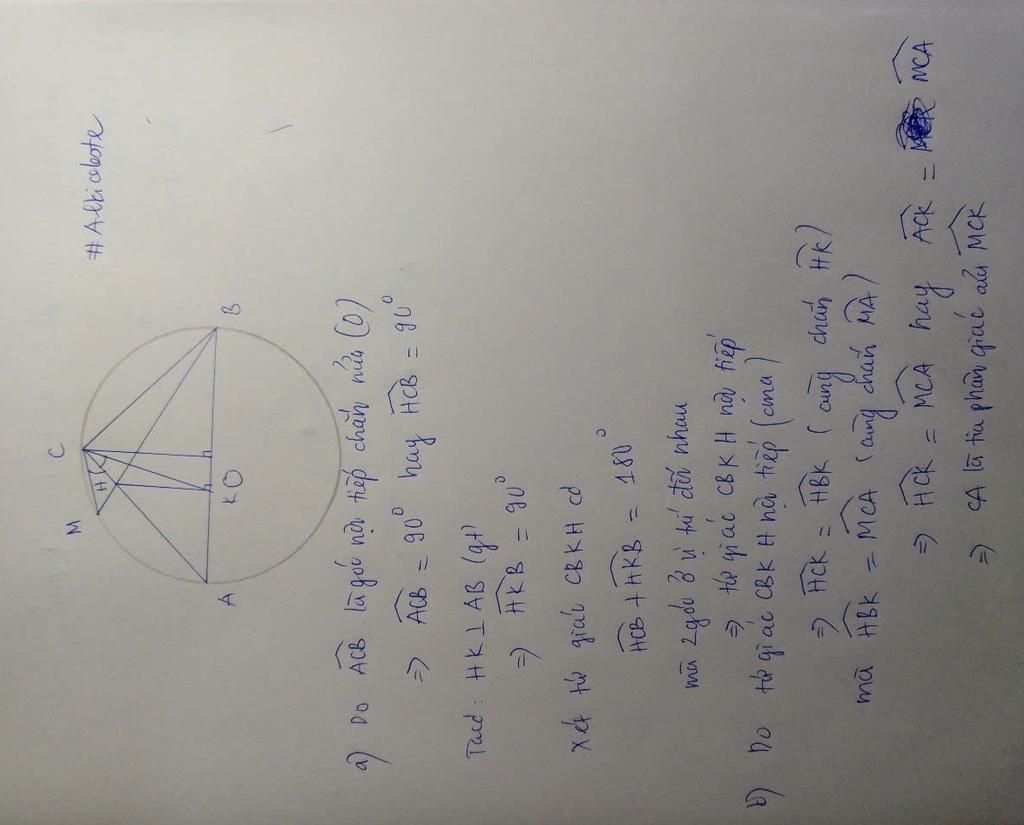 #Alkiceleste
C
M
H
A
K
O
B
a) Do ACB là góc nội tiếp chắn nửa (O)
=> ACB = 90° hay HCB = 90°
Ta có: HK ⊥ AB (gt)
=> HKB = 90°
Xét tứ giác CBKH có
HCB + HKB = 180°
mà 2 góc ở vị trí đối nhau
=> tứ giác CBKH nội tiếp
b) Do tứ giác CBKH nội tiếp (cma)
=> HCK = HBK (cùng chắn HK)
mà HBK = MCA (cùng chắn MA)
=> HCK = MCA hay ACK = MCA
=> CA là tia phân giác của MCK